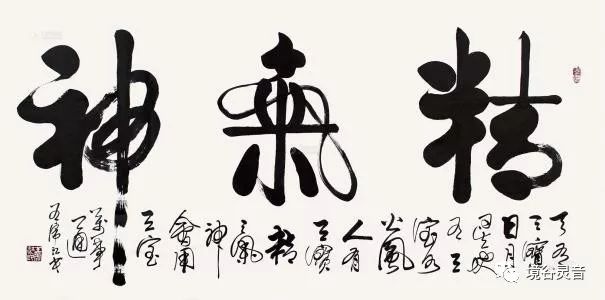 精氣神
天有
三寶
日月
星地
有三
寶水
火風
人有
三寶
精
氣
神
會用
三宝
萬事
通
境谷灵音